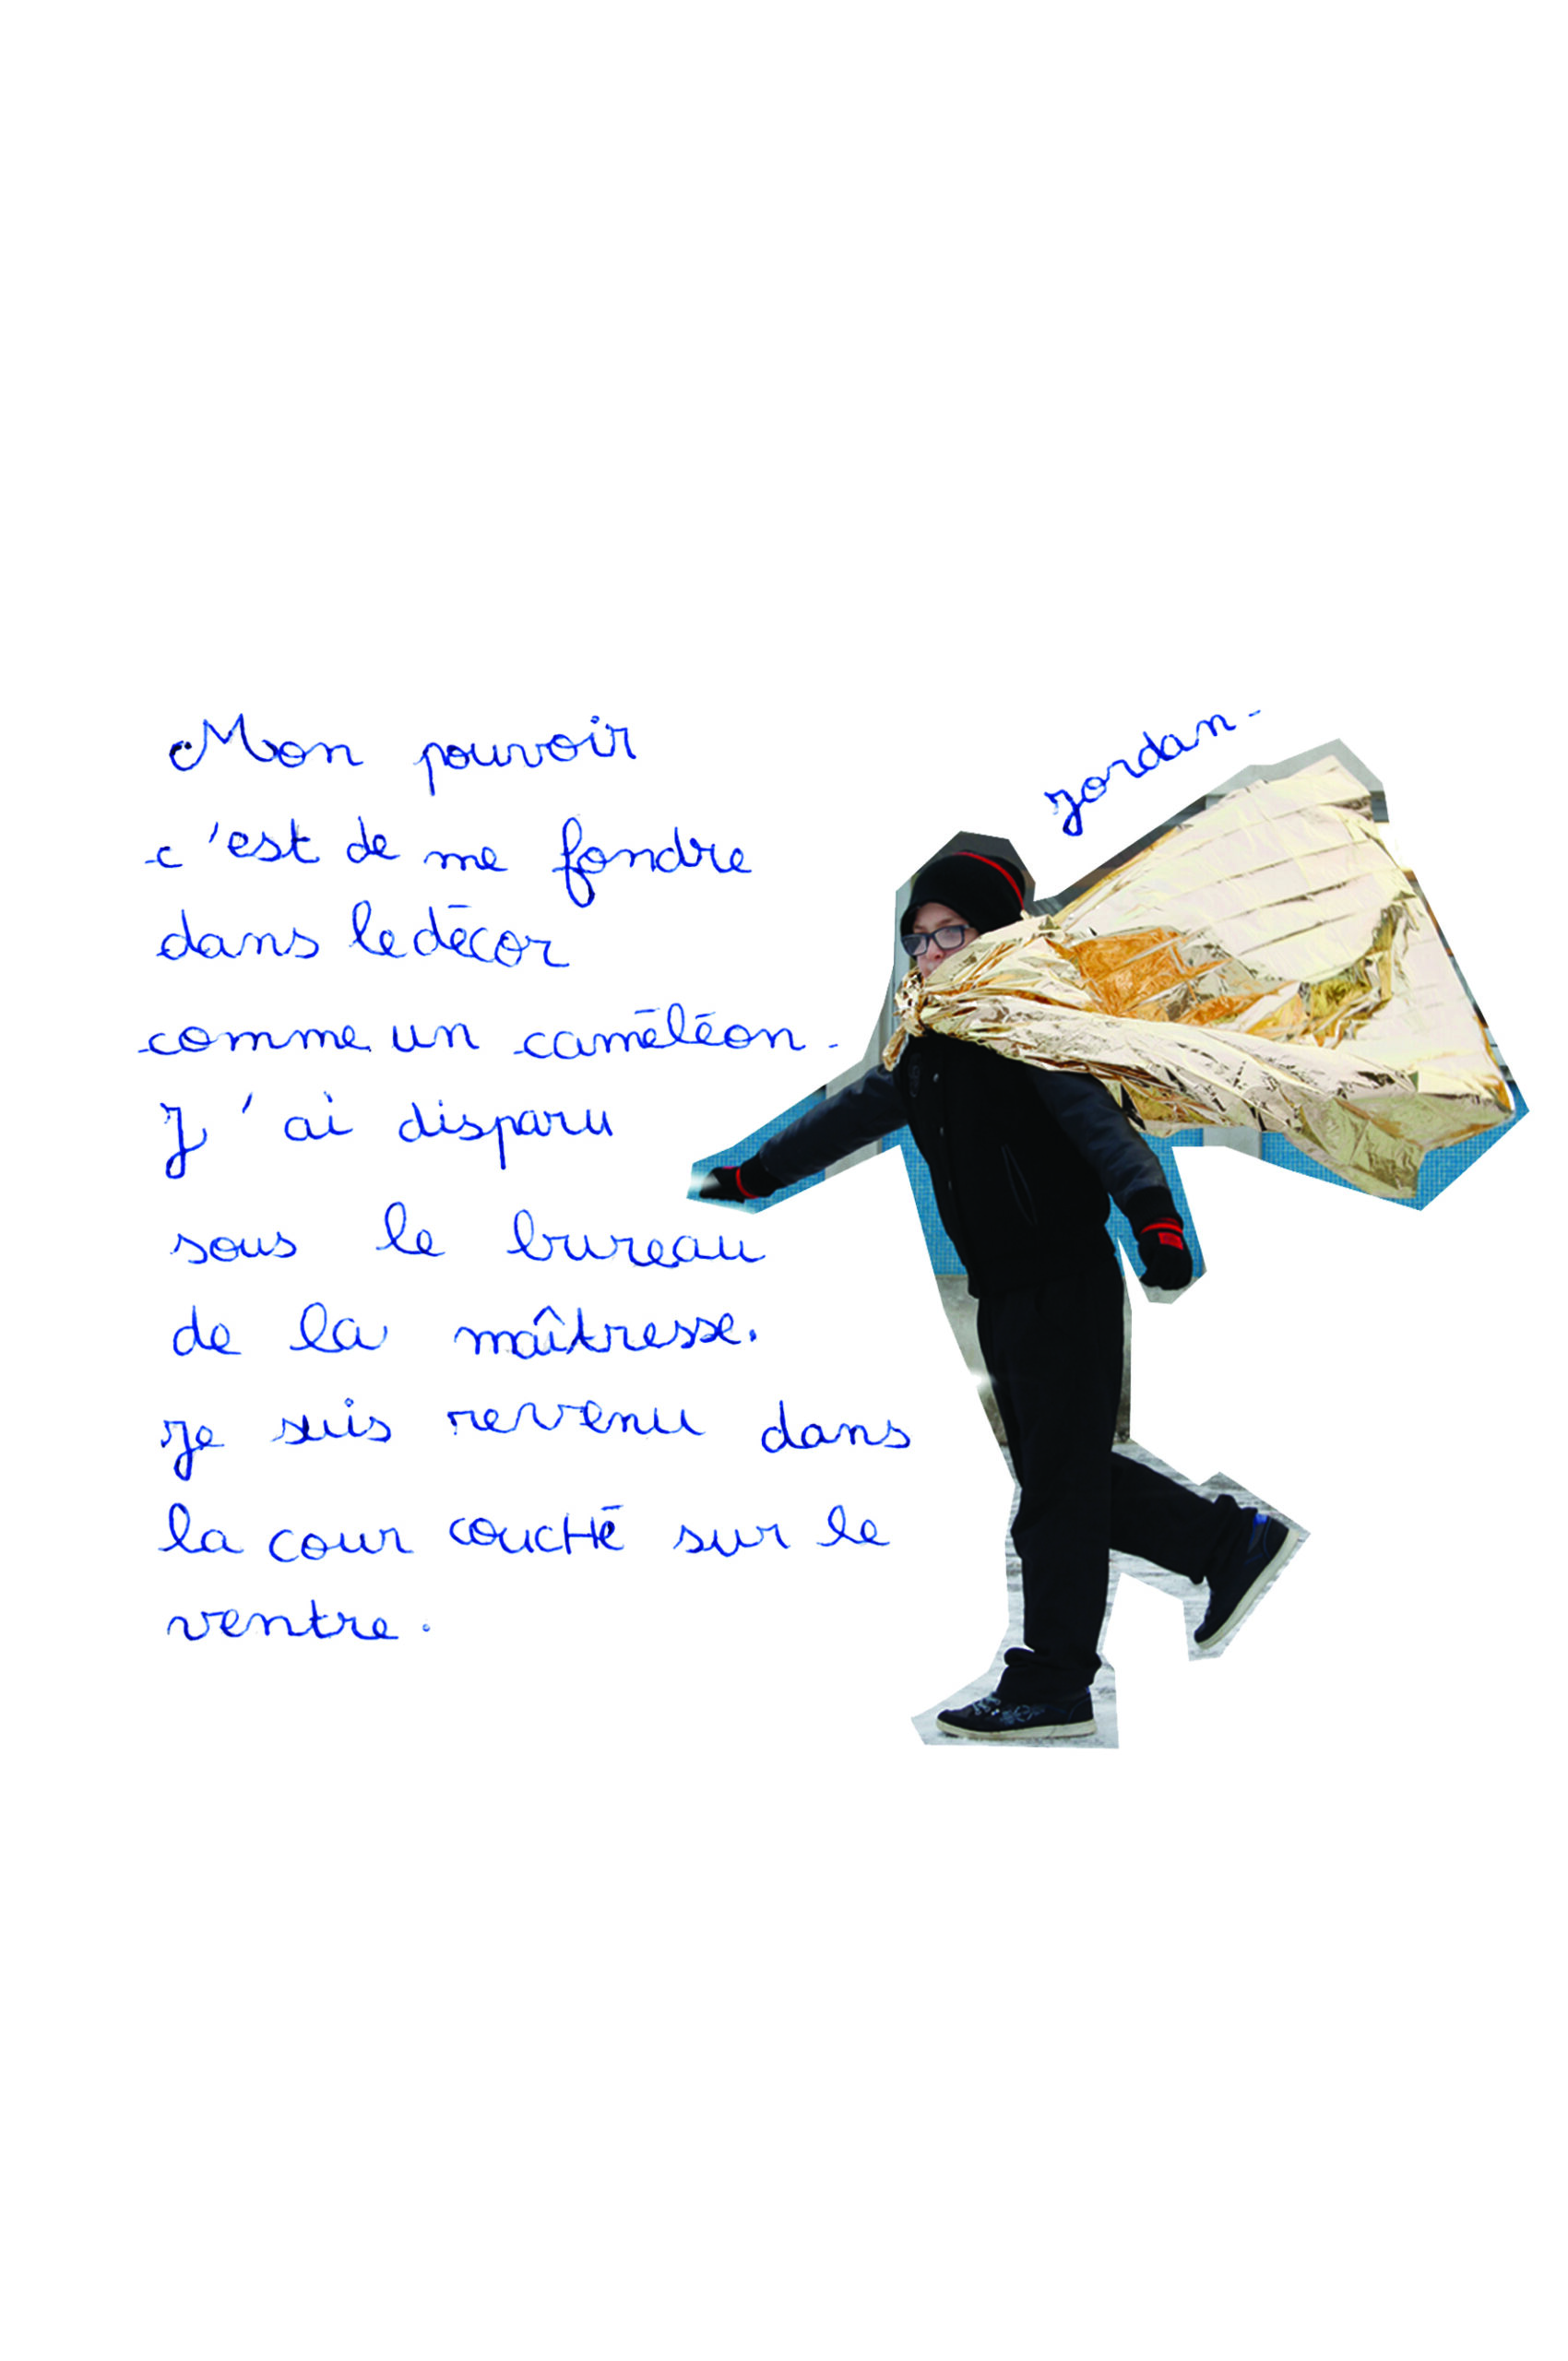 Mon pouvoir
c'est de me fondre
dans le décor
comme un caméléon.
J'ai disparu
sous le bureau
de la maîtresse.
je suis revenu dans
la cour coucHé sur le
ventre.
jordan